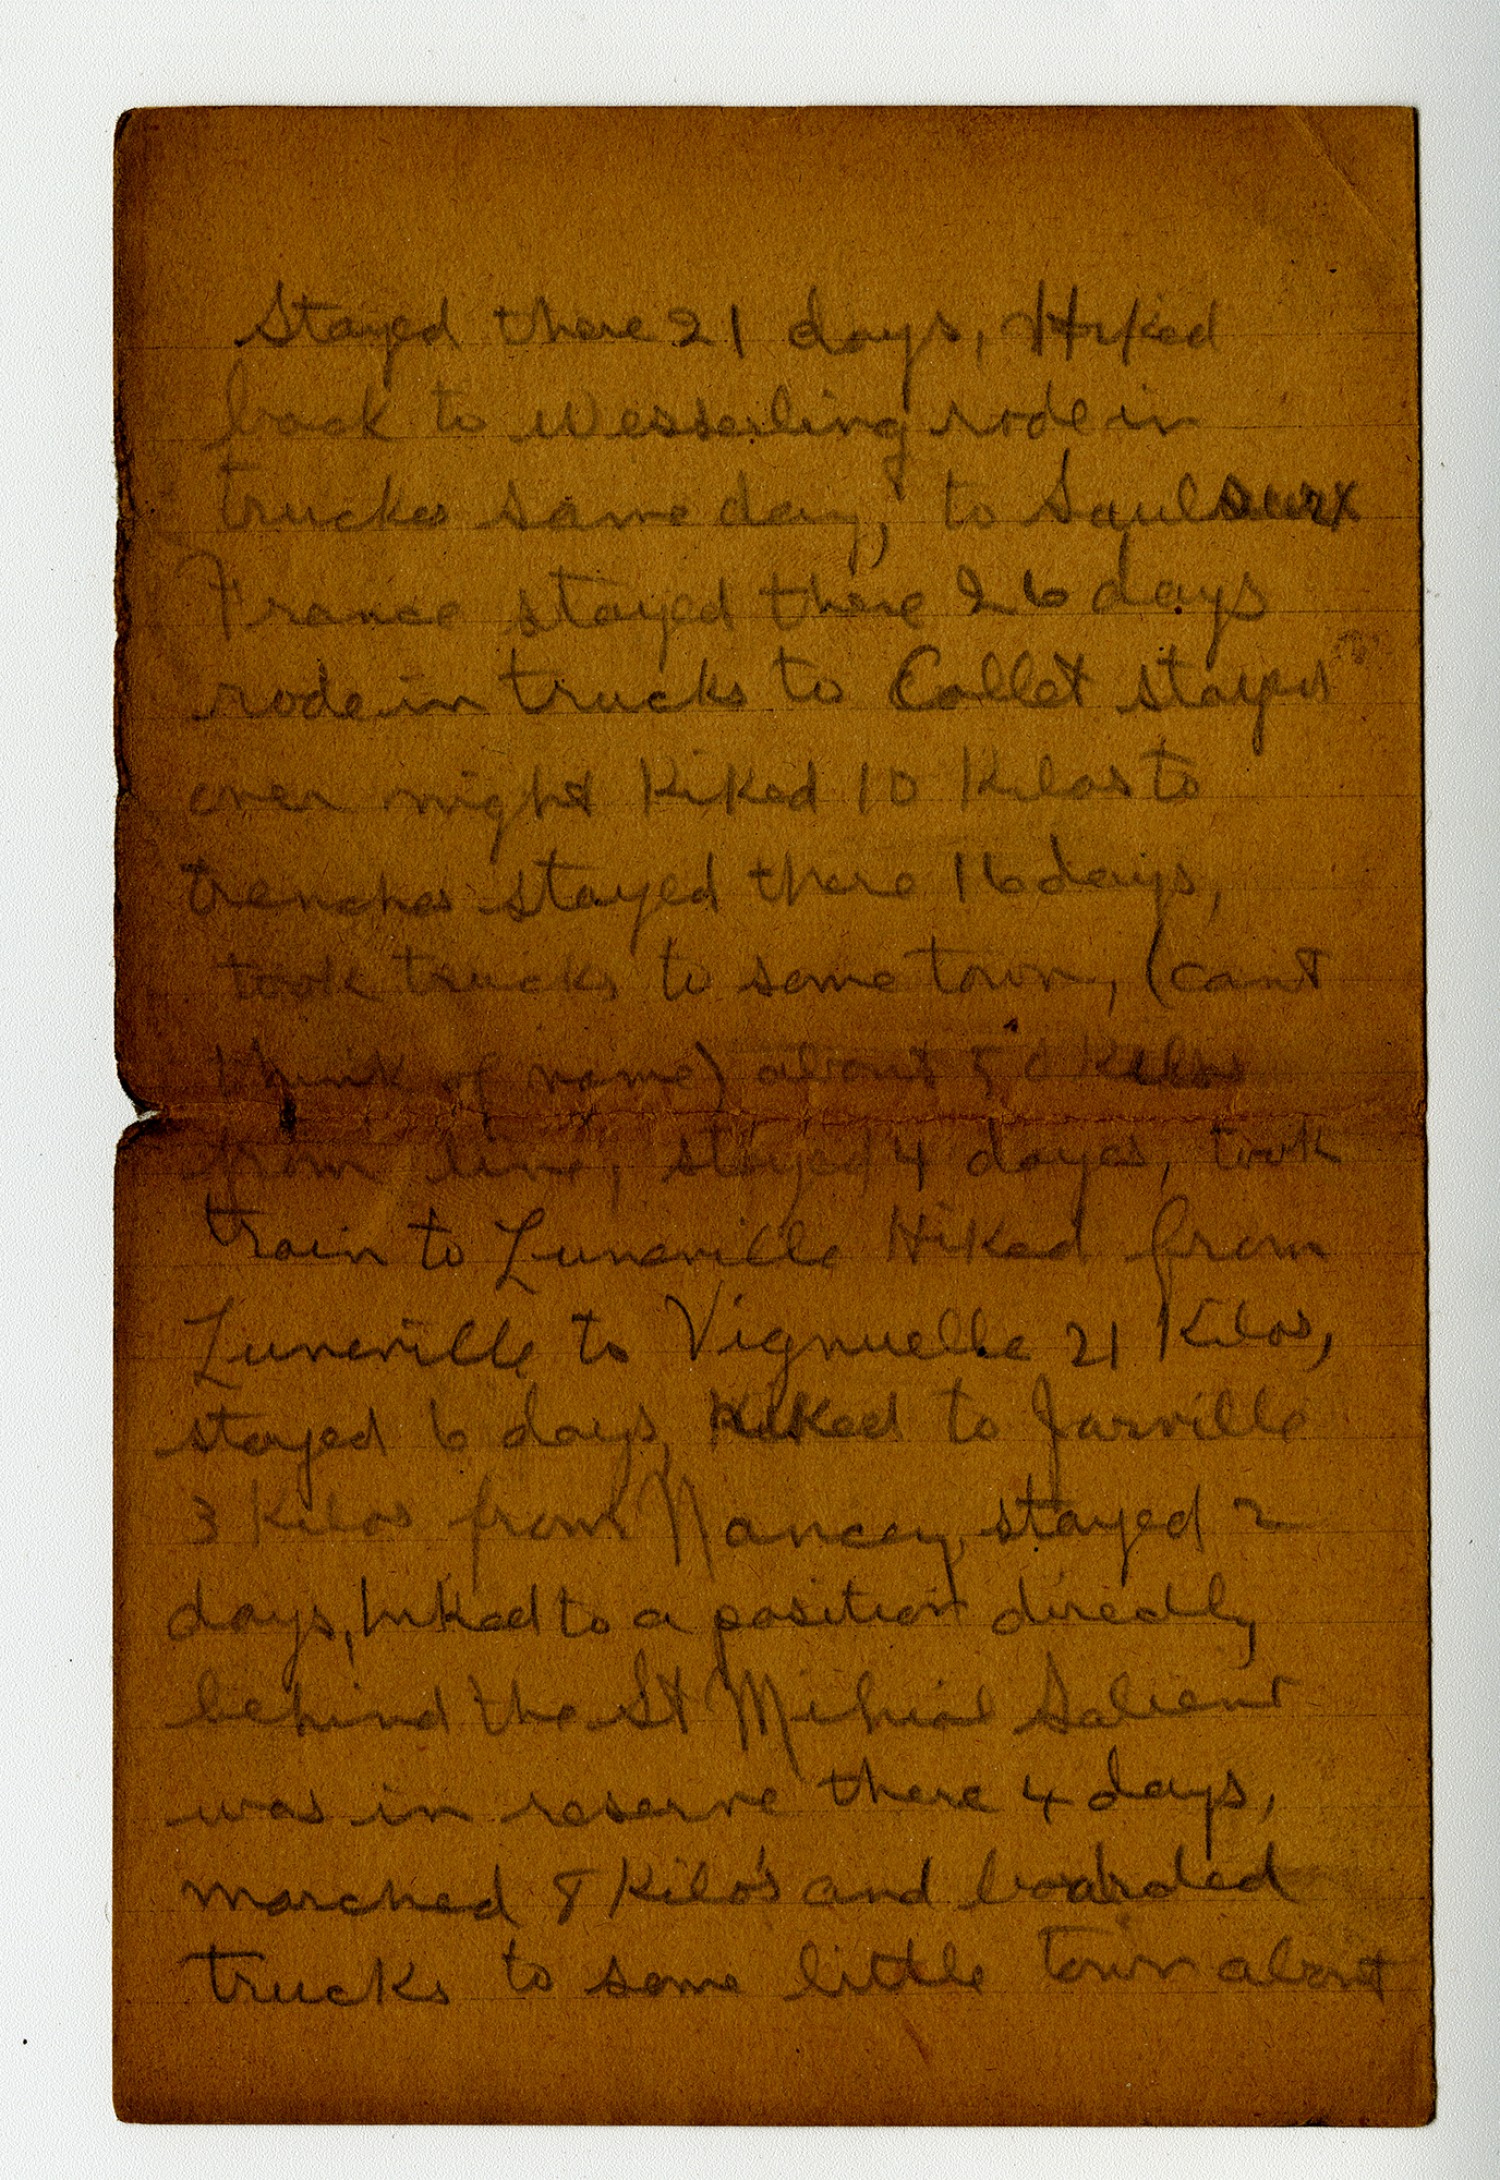 Stayed there 21 days, Hiked
back to Wesserling rode in
trucks same day, to Saulsurx
France stayed there 26 days
rode in trucks to Collet stayed
over night Hiked 10 Kilos to
trenches stayed there 16 days,
took trucks to some town, (cant
think of name) about 50 Kilos
from line, stayed 4 dayes, took
train to Luneville Hiked from
Luneville to Vignuelle 21 Kilos,
stayed 6 days, Hiked to Jarville
3 Kilos from Nancey, stayed 2
days, hiked to a position directly
behind the St Mihial Salient
was in reserve there 4 days,
marched 8 Kilo's and boarded
trucks to some little town about